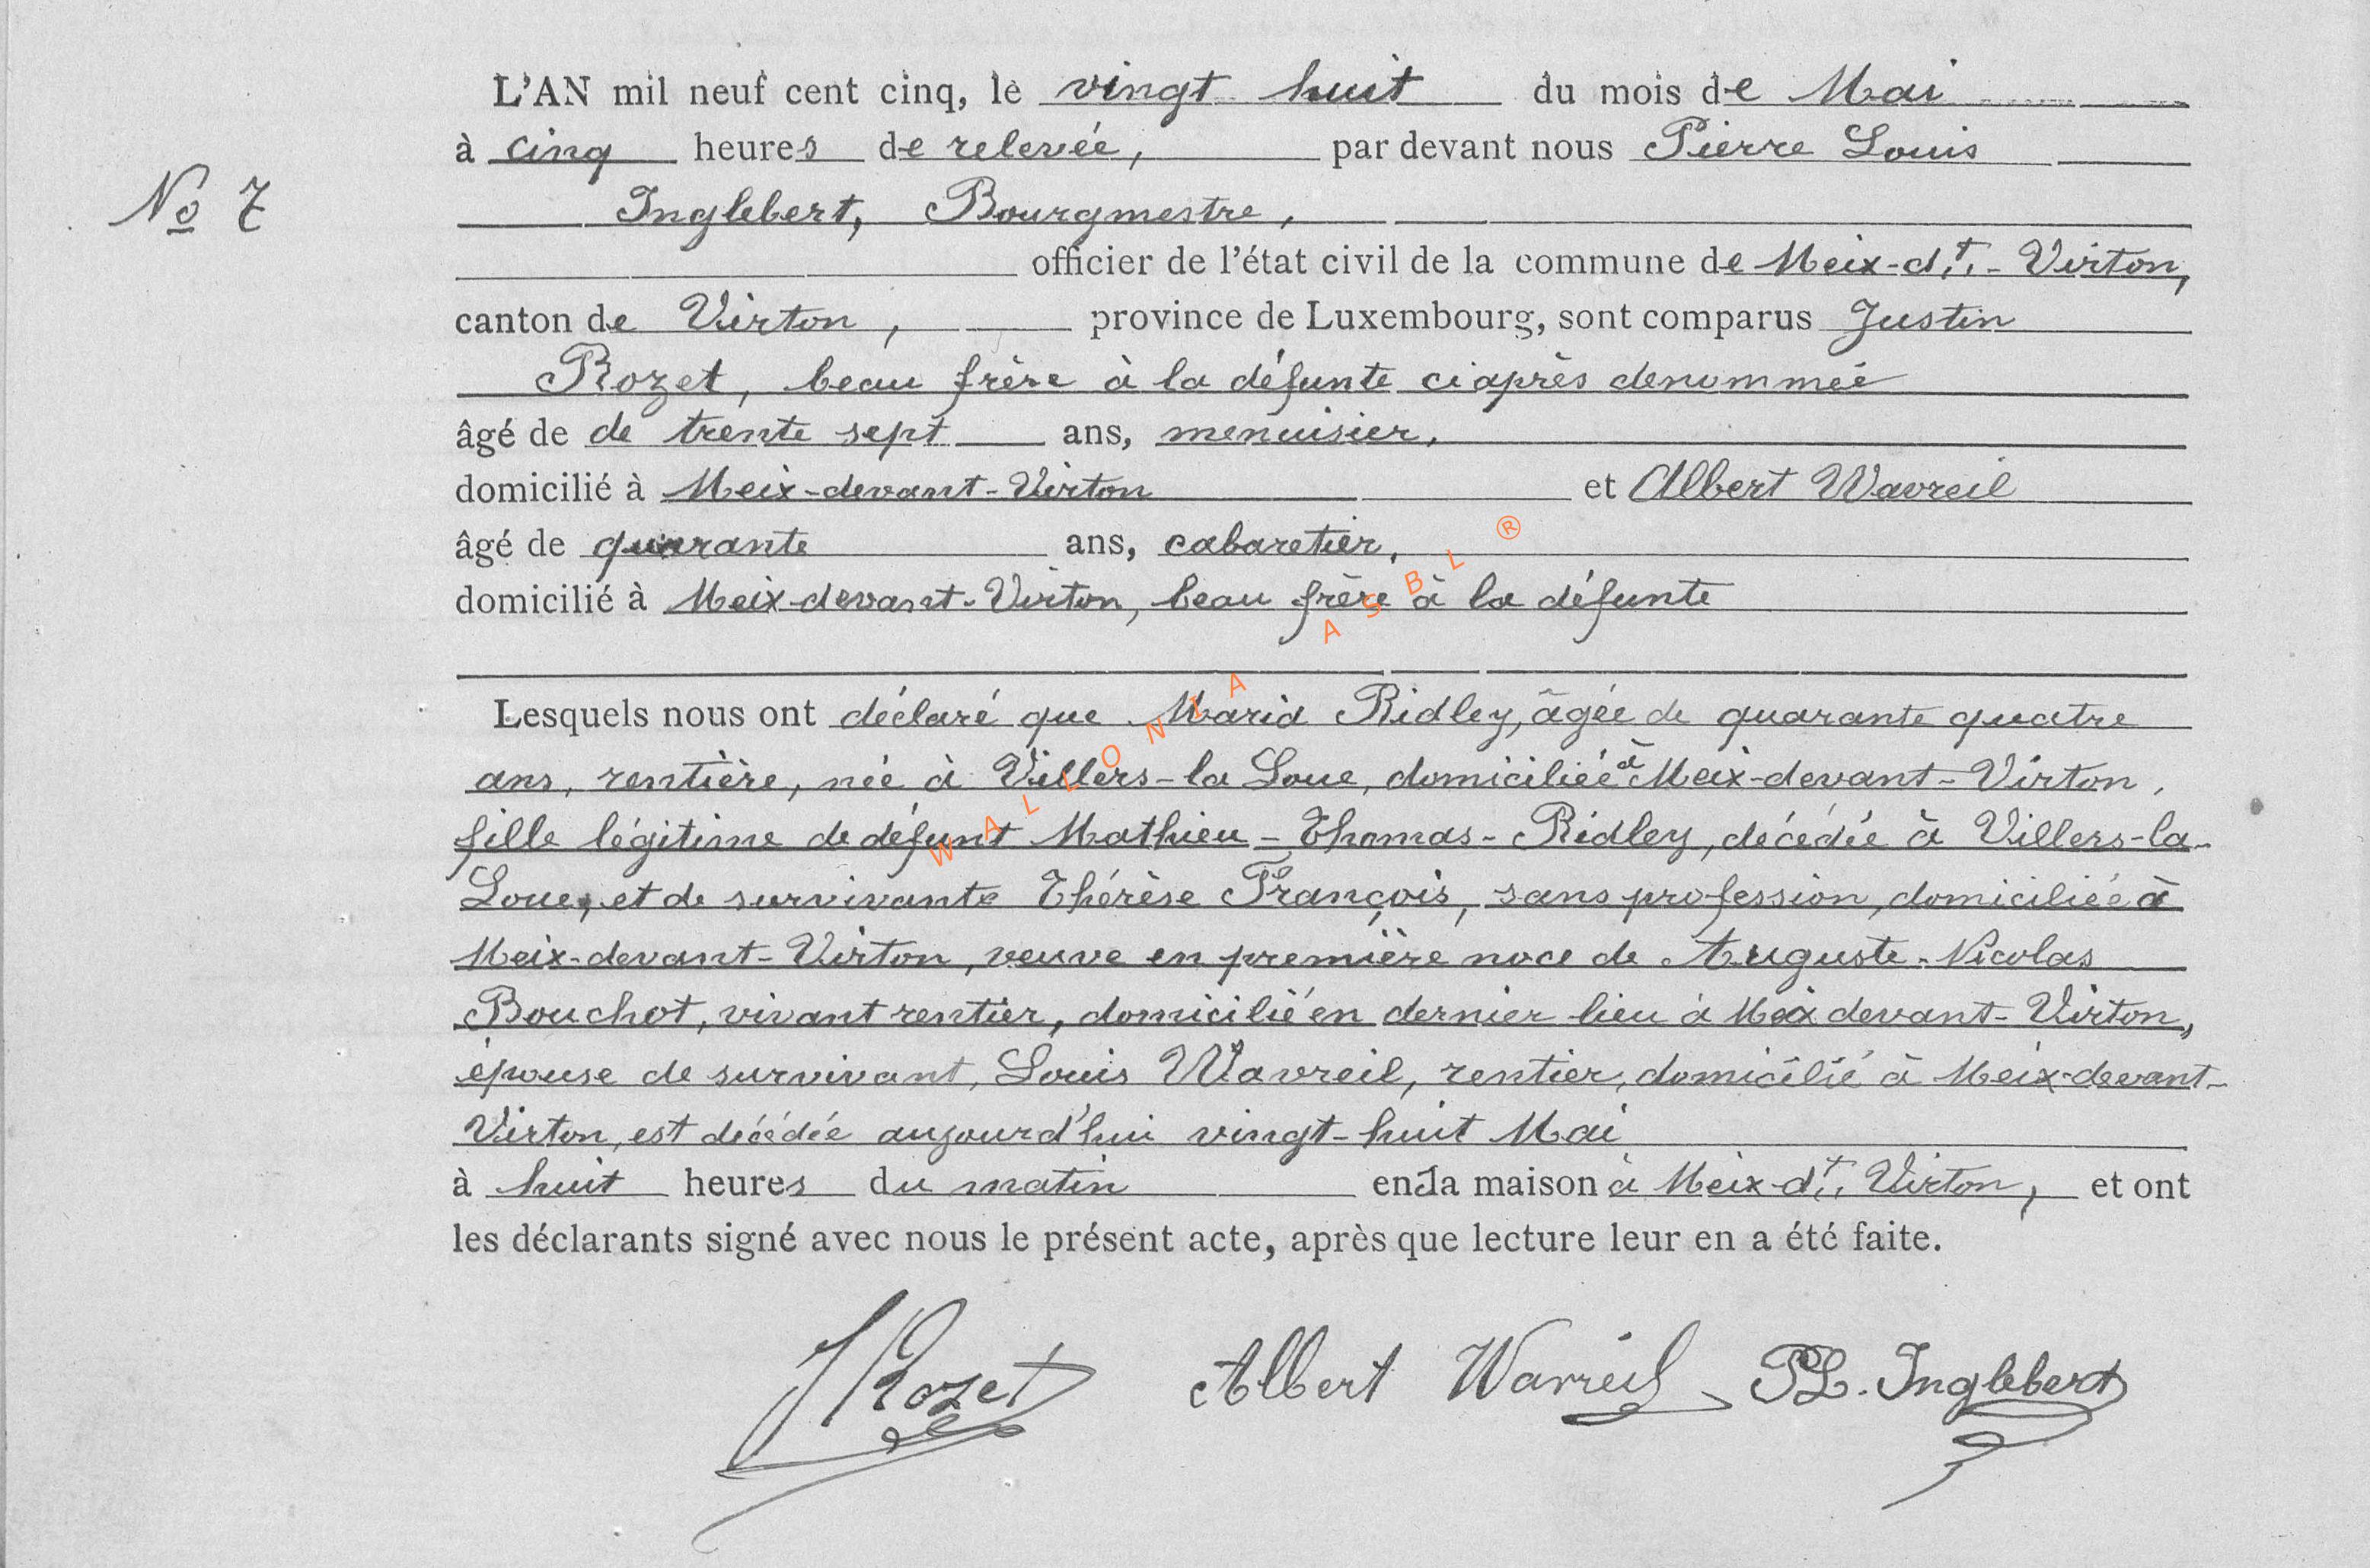 L'AN mil neuf cent cinq, le vingt huit du mois de Mai
à cinq heures de relevée, par devant nous Pierre Louis
No 7
Inglebert, Bourgmestre,
officier de l'état civil de la commune de Meix-dt.-Virton,
canton de Virton, province de Luxembourg, sont comparus Justin
Rozet, beau frère à la défunte ciaprès denommée
âgé de de trente sept ans, menuisier,
domicilié à Meix-devant-Virton et Albert Wavreil
âgé de quarante ans, cabaretier,
domicilié à Meix-devant-Virton, beau frère à la défunte
Lesquels nous ont déclaré que Maria Ridley, âgée de quarante quatre
ans, rentière, née à Villers-la Loue, domiciliée à Meix-devant-Virton,
fille légitime de défunt Mathieu-Thomas-Ridley, décédée à Villers-la-
Loue, et de survivante Thérèse François, sans profession, domiciliée à
Meix-devant-Virton, veuve en première noce de Auguste-Nicolas
Bouchot, vivant rentier, domicilié en dernier lieu à Meix devant-Virton,
épouse de survivant, Louis Wavreil, rentier, domicilié à Meix-devant-
Virton, est décédée aujourd'hui vingt-huit Mai
à huit heures du matin en la maison à Meix-dt. Virton, et ont
les déclarants signé avec nous le présent acte, après que lecture leur en a été faite.
J Rozet Albert Wavreil PL. Inglebert
WALLONIA ASBL ®